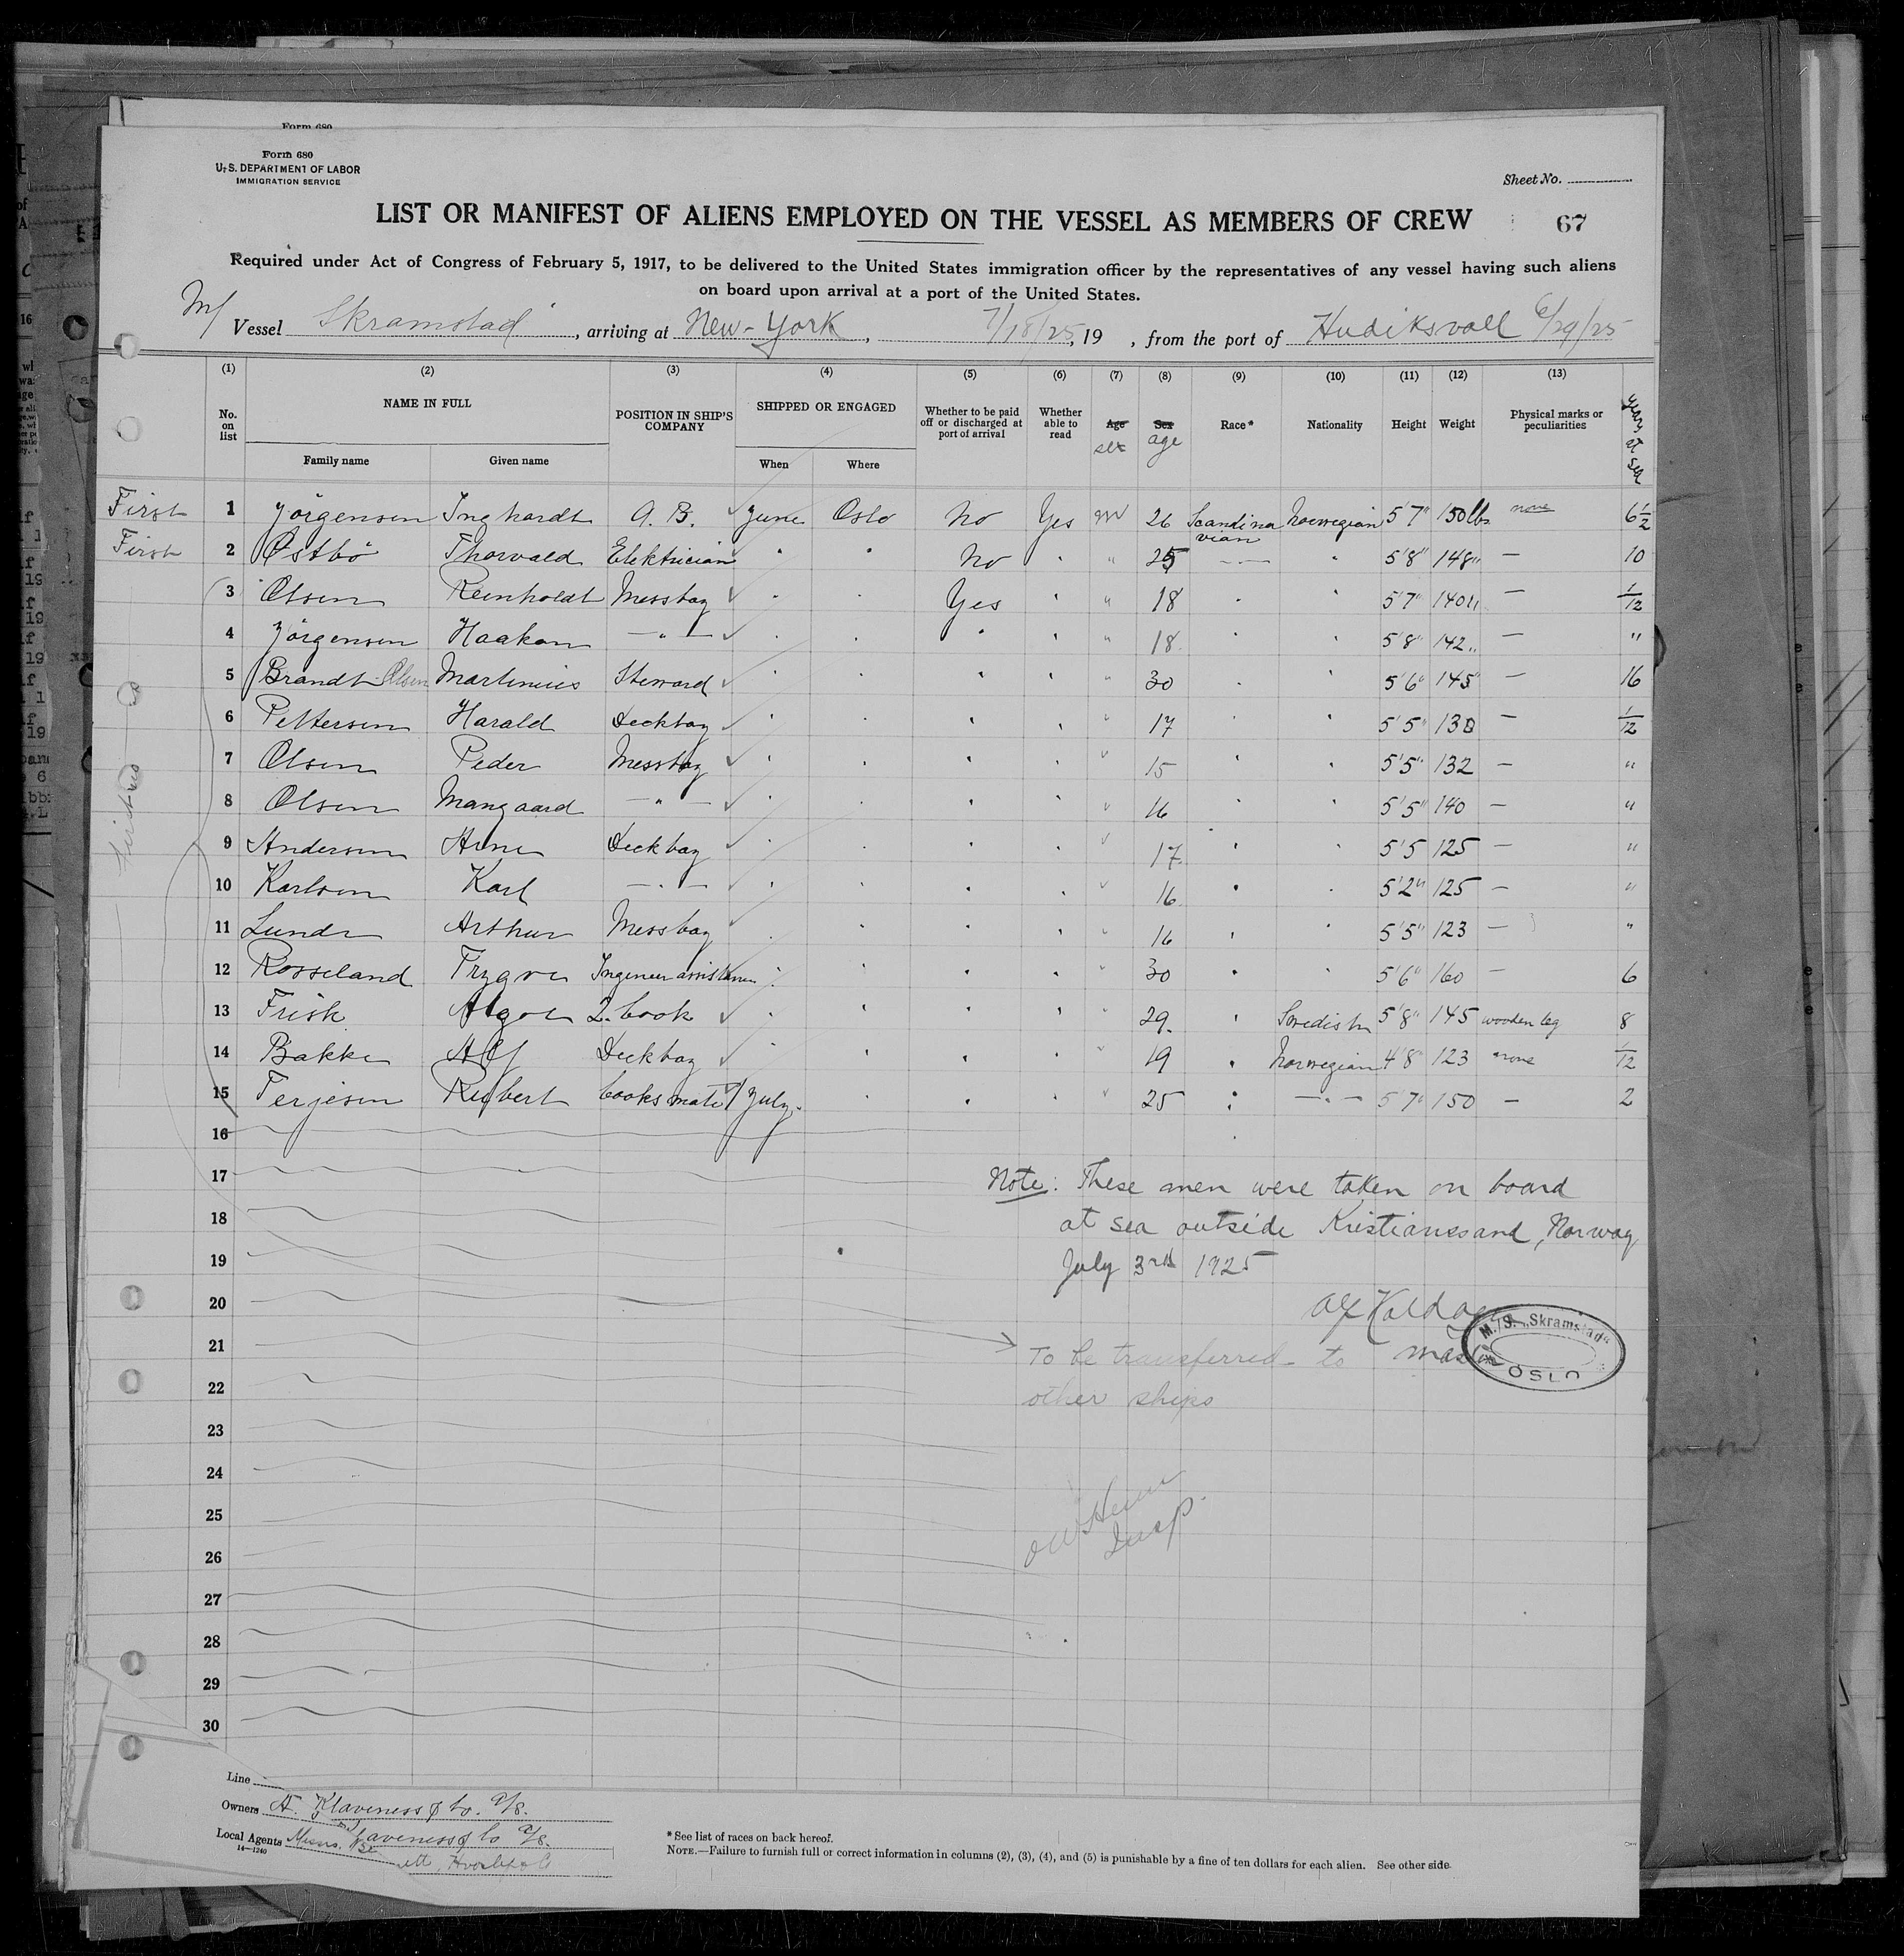 Form 680
Form 680
U.S. DEPARTMENT OF LABOR
IMMIGRATION SERVICE
Sheet No.
LIST OR MANIFEST OF ALIENS EMPLOYED ON THE VESSEL AS MEMBERS OF CREW 67
Required under Act of Congress of February 5, 1917, to be delivered to the United States immigration officer by the representatives of any vessel having such aliens
on board upon arrival at a port of the United States.
M/ Vessel Skramstad, arriving at New-York, 7/18/25, 19 , from the port of Hudiksvall 6/29/25
(1) (2) (3) (4) (5) (6) (7) (8) (9) (10) (11) (12) (13)
No. on list NAME IN FULL POSITION IN SHIP'S COMPANY SHIPPED OR ENGAGED Whether to be paid off or discharged at port of arrival Whether able to read Age sex Sex age Race* Nationality Height Weight Physical marks or peculiarities years at sea
Family name Given name When Where
First 1 Jörgensen Inghardt A. B. June Oslo No Yes m 26 Scandinavian Norwegian 5'7" 150 lbs none 6 1/2
First 2 Östbö Thorvald Elektrician " " No " " 25 — " 5'8" 148 " — 10
3 Olsen Reinholdt Messboy " " Yes " " 18 " " 5'7" 140 " — 1/12
4 Jörgensen Haakon — " — " " " " " 18 " " 5'8" 142 " — "
5 Brandt Olsen Martinius Steward " " " " " 30 " " 5'6" 145 — 16
6 Pettersen Harald Deckboy " " " " " 17 " " 5'5" 130 — 1/12
7 Olsen Peder Messboy " " " " " 15 " " 5'5" 132 — "
8 Olsen Mangaard — " — " " " " " 16 " " 5'5" 140 — "
9 Andersen Arne Deckboy " " " " " 17 " " 5'5 125 — "
10 Karlsen Karl — " — " " " " " 16 " " 5'2" 125 — "
11 Lunde Arthur Messboy " " " " " 16 " " 5'5" 123 — "
12 Rosseland Trygve Ingeneur assistanse " " " " " 30 " " 5'6" 160 — 6
13 Frisk Algot 2. Cook " " " " " 29 " Swedish 5'8" 145 wooden leg 8
14 Bakke Alf Deckboy " " " " " 19 " Norwegian 4'8" 123 none 1/12
15 Terjesen Reibert Cooks mate July " " " " 25 " — " — 5'7" 150 — 2
16
17
18
19
20
21
22
23
24
25
26
27
28
29
30
Note: These men were taken on board
at sea outside Kristianssand, Norway
July 3rd 1925
Master
M/S. „Skramstad"
OSLO
To be transferred to
other ships
Insp.
Line
Owners A. F. Klaveness & Co. A/S.
Local Agents Messrs. Klaveness & Co A/S.
14—1240
* See list of races on back hereof.
NOTE.—Failure to furnish full or correct information in columns (2), (3), (4), and (5) is punishable by a fine of ten dollars for each alien. See other side.